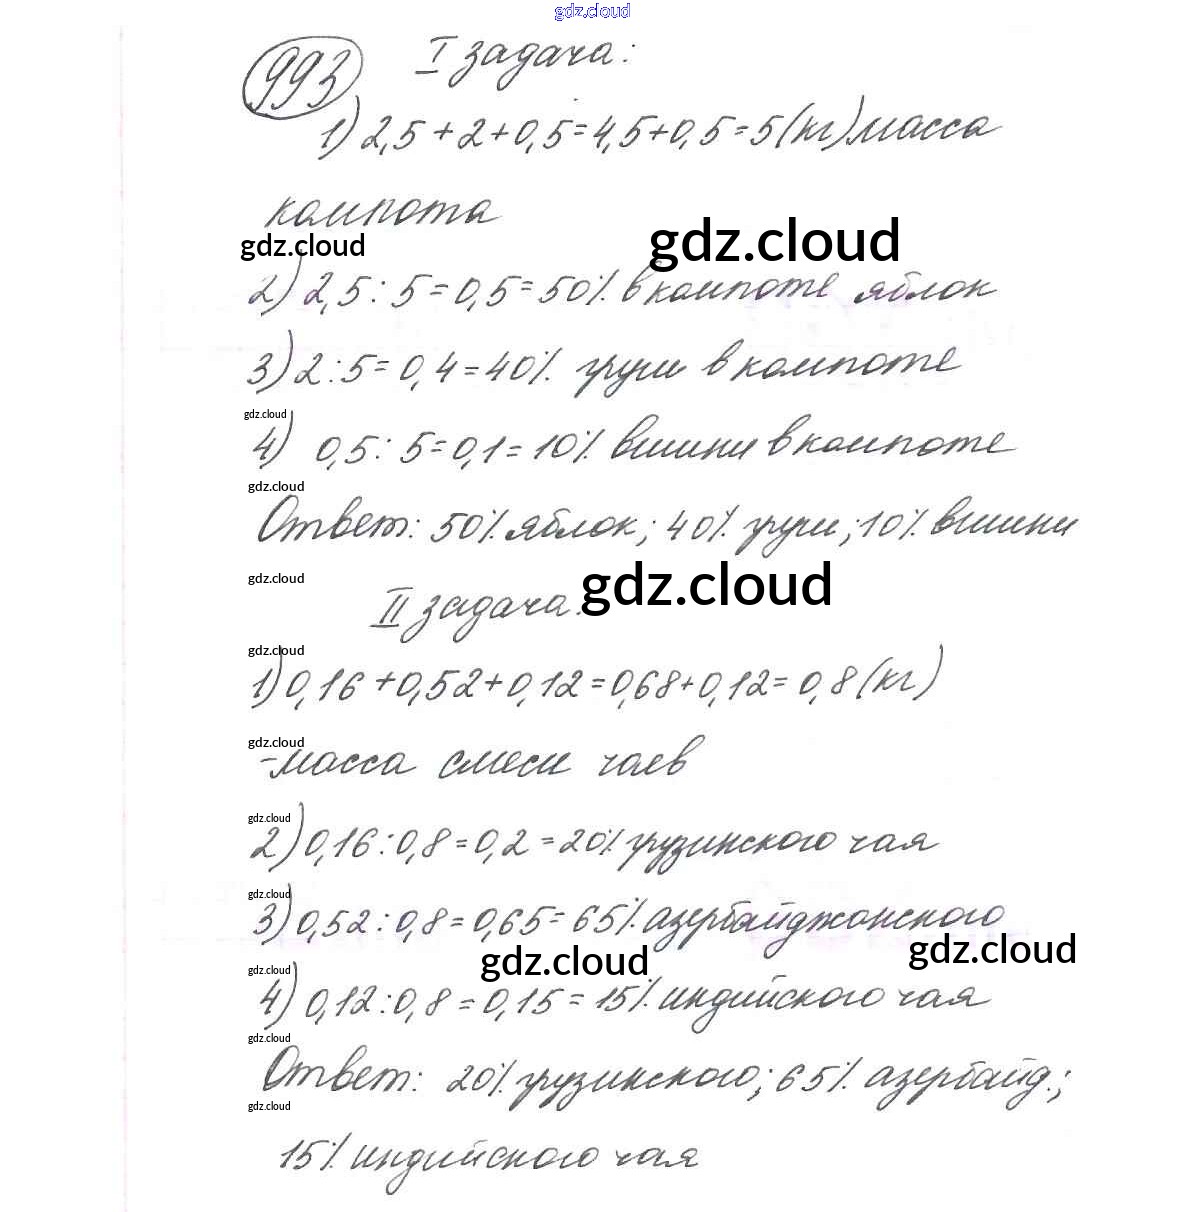 gdz.cloud
993 I задача:
1) 2,5 + 2 + 0,5 = 4,5 + 0,5 = 5 (кг) масса
компота
gdz.cloud gdz.cloud
2) 2,5 : 5 = 0,5 = 50% в компоте яблок
3) 2 : 5 = 0,4 = 40% груш в компоте
gdz.cloud
4) 0,5 : 5 = 0,1 = 10% вишни в компоте
gdz.cloud
Ответ: 50% яблок; 40% груш; 10% вишни
gdz.cloud gdz.cloud
II задача.
gdz.cloud
1) 0,16 + 0,52 + 0,12 = 0,68 + 0,12 = 0,8 (кг)
gdz.cloud
- масса смеси чаев
gdz.cloud
2) 0,16 : 0,8 = 0,2 = 20% грузинского чая
gdz.cloud
3) 0,52 : 0,8 = 0,65 = 65% азербайджонского
gdz.cloud gdz.cloud
gdz.cloud
4) 0,12 : 0,8 = 0,15 = 15% индийского чая
gdz.cloud
Ответ: 20% грузинского; 65% азербайд.;
gdz.cloud
15% индийского чая